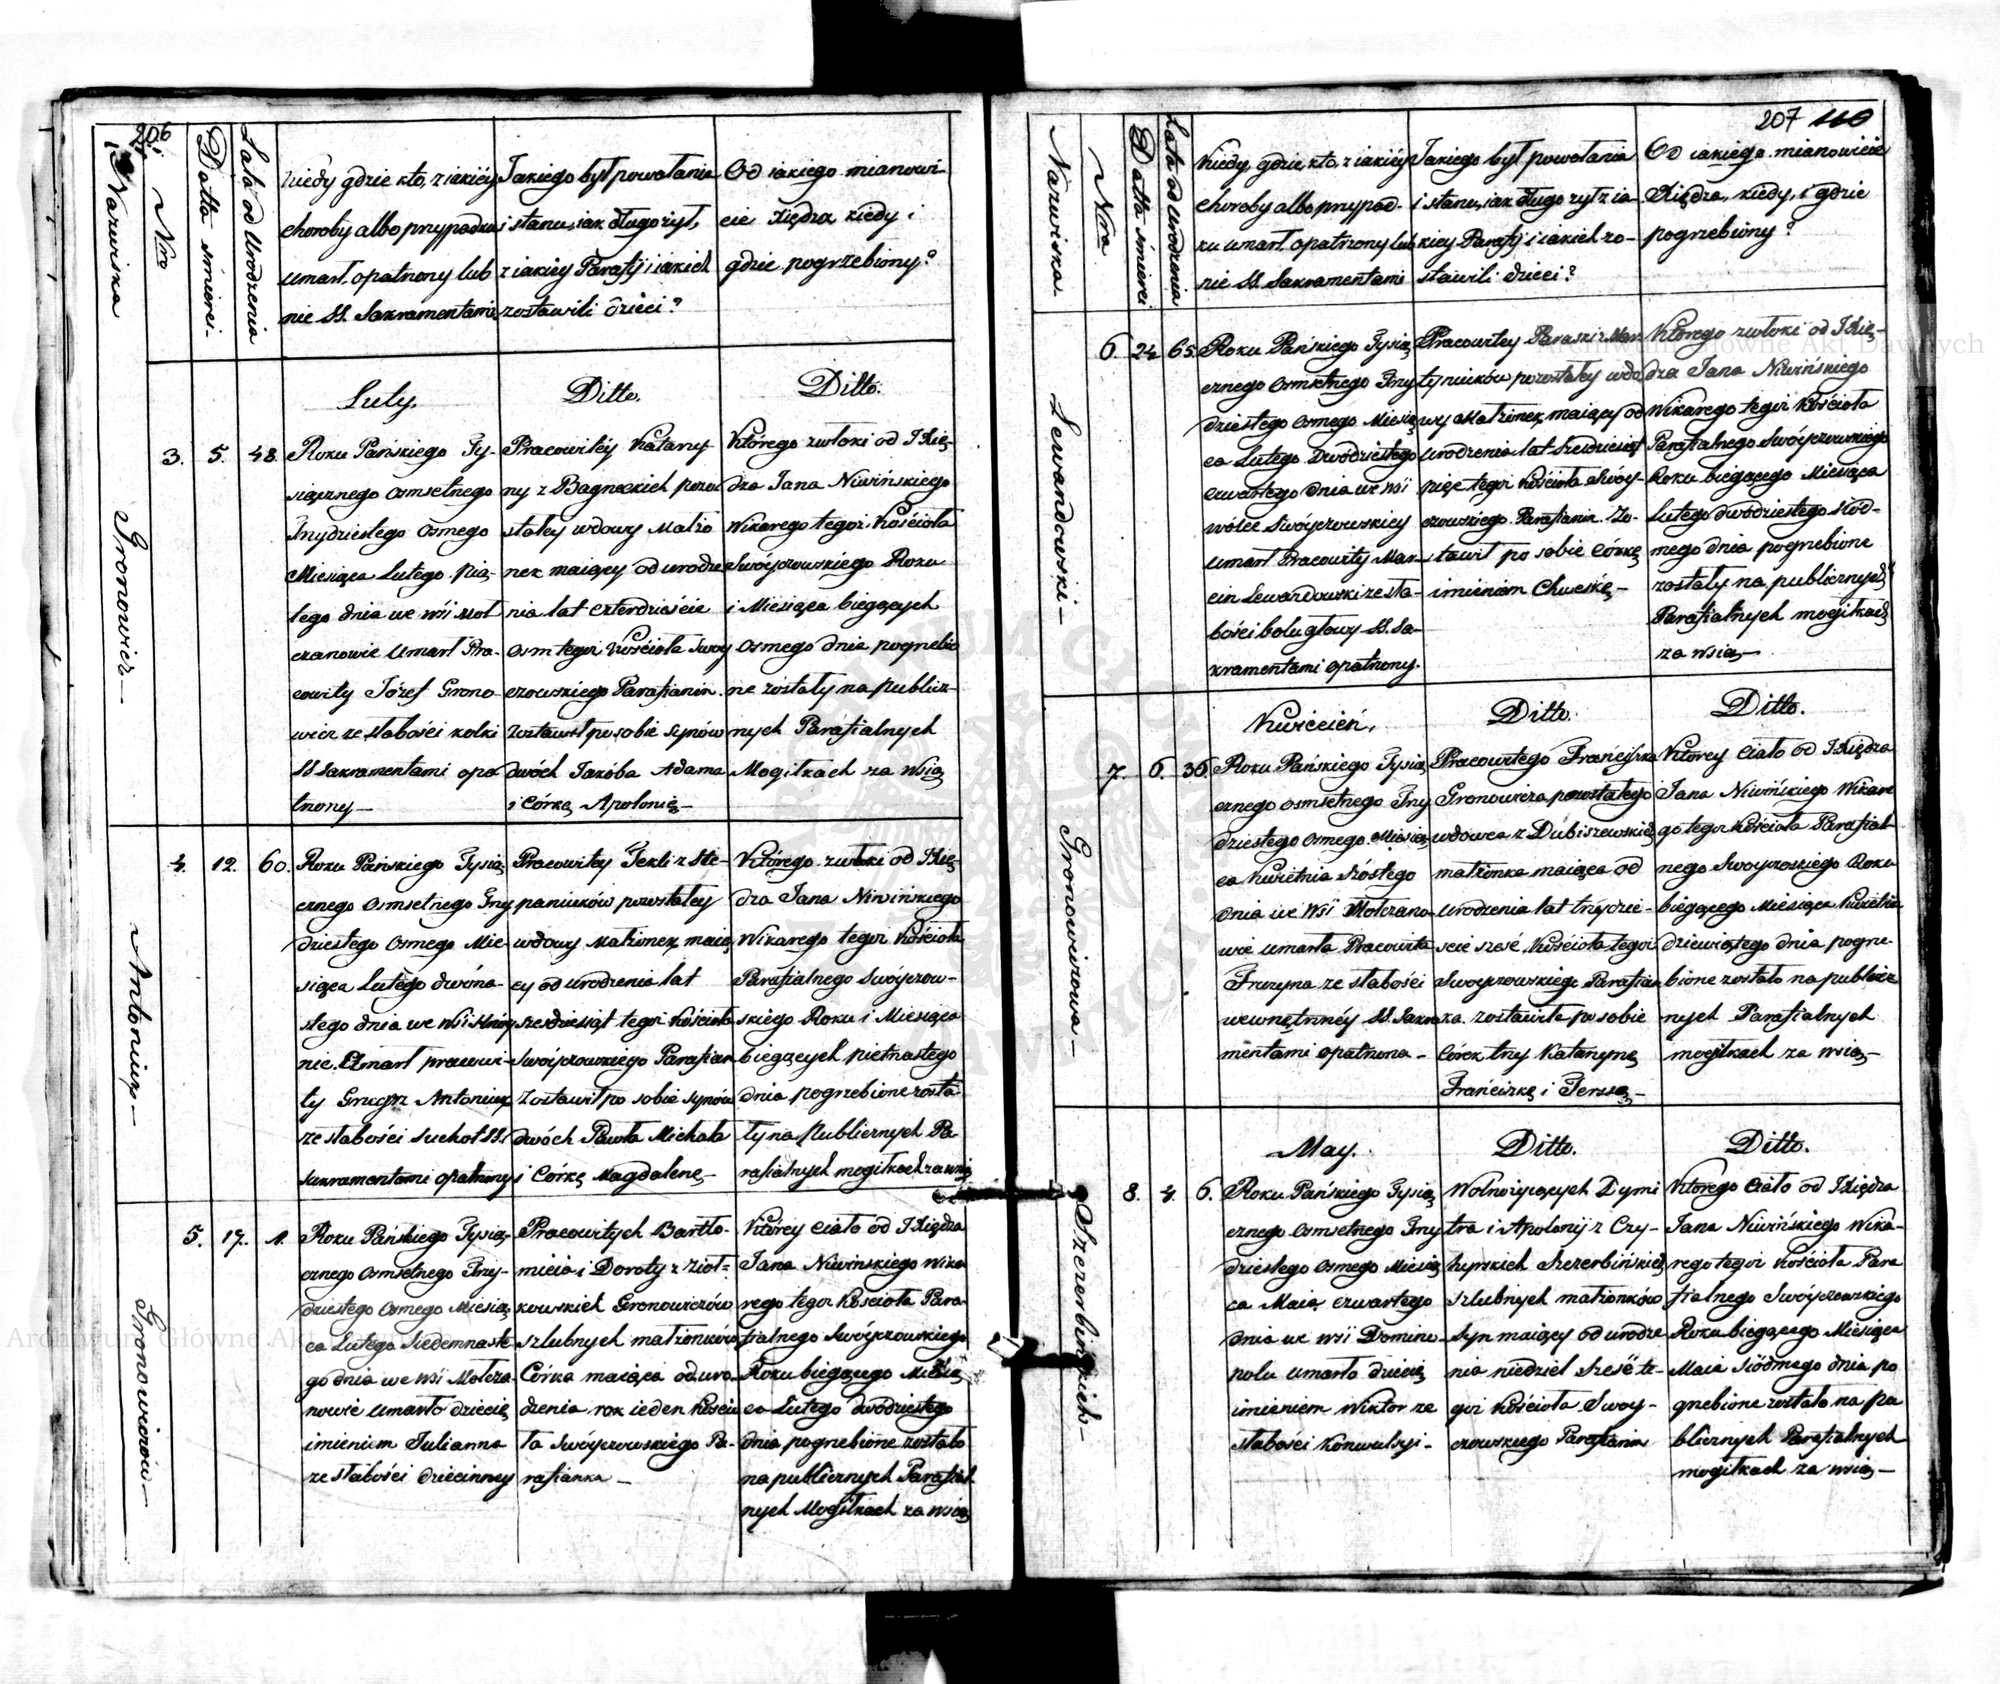 206
Nazwiska
Nro
Datta śmierci
Lata od Urodzenia
Kiedy gdzie kto, z iakiéy
choroby albo przypadku
umarł, opatrzony lub
nie SS. Sakramentami
Jakiego był powołania
i stanu, iak długo żył,
z iakiéy Parafij i iakich
zostawili dzieci?
Od iakiego mianowi-
cie Xiędza kiedy i
gdzie pogrzebiony?
Luty.
Ditto.
Ditto.
Gronowicz
3.
5.
48.
Roku Pańskiego Ty-
siącznego Osmsetnego
Trzydziestego Osmego
Miesiąca Lutego Pią-
tego dnia we wsi Moł
czanowie Umarł Pra-
cowity Józef Grono-
wicz ze słabości kolki
SS Sakramentami opa
trzony
Pracowitéy Katarzy-
ny z Bagneckich pozo
stałey wdowy Małżo
nek maiący od urodze
nia lat czterdzieście
Osm tegoż Kościoła Swoy
czowskiego Parafianin.
Zostawił po sobie synów
dwóch Jakóba Adama
i Córkę Apolonię
Którego zwłoki od JXię-
dza Jana Niwińskiego
Wikarego tegoż Kościoła
Swóyczowskiego Roku
i Miesiąca biegących
Osmego dnia pogrzebio
ne zostały na publicz-
nych Parafialnych
Mogiłkach za wsią
Antoniuk
4.
12.
60.
Roku Pańskiego Tysią
cznego Osmsetnego Trzy
dziestego Osmego Mie
siąca Lutego dwóna-
stego dnia we Wsi
nie. Umarł pracowi-
ty Grzegorz Antoniuk
ze słabości Suchot SS.
Sakramentami opatrzony
Pracowitey Tekli z Ste-
paniuków pozostałey
wdowy Małżonek maią
cy od urodzenia lat
sześćdziesiąt tegoż Kościoła
Swóyczowskiego Parafian
Zostawił po sobie synów
dwóch Pawła Michała
i Córkę Magdalenę
Którego zwłoki od JXię-
dza Jana Niwińskiego
Wikarego tegoż Kościoła
Parafialnego Swóyczow-
skiego Roku i Miesiąca
biegących pietnastego
dnia pogrzebione zosta
ły na Publicznych Pa-
rafialnych mogiłkach za wsią
Gronowiczów
5.
17.
1.
Roku Pańskiego Tysią-
cznego Osmsetnego Trzy-
dziestego Osmego Miesią
ca Lutego Siedemnaste
go dnia we wsi Mołcza-
nowie umarło dziecię
imieniem Julianna
ze słabości dziecinney
Pracowitych Bartło-
mieia i Doroty z Ziół-
kowskich Gronowiczów
szlubnych małżonków
Córka maiąca od uro-
dzenia rok ieden Kościo
ła Swóyczowskiego Pa-
rafianka
Któréy ciało od JXiędza
Jana Niwinskiego Wika
rego tegoż Kościoła Para-
fialnego Swóyczowskiego
Roku biegącego Miesią
ca Lutego dwódziestego
dnia pogrzebione zostało
na publicznych Parafial
nych Mogiłkach za wsią
207 110
Nazwiska.
Nro
Datta śmierci
Lata od Urodzenia
Kiedy, gdzie, kto, z iakiéy
choroby albo przypad-
ku umarł, opatrzony lub
nie SS. Sakramentami
Jakiego był powołania
i stanu, iak długo żył z ia-
kiey Parafij i iakich zo-
stawili dzieci?
Od iakiego mianowicie
Xiędza, kiedy, i gdzie
pogrzebiony?
Lewandowski
6.
24
65.
Roku Pańskiego Tysią
cznego Osmsetnego Trzy
dziestego Osmego Miesią
ca Lutego Dwódziestego
czwartego dnia we wsi
wólce Swóyczowskiey
umarł Pracowity Mar-
cin Lewandowski ze sła-
bości bolu głowy SS. Sa-
kramentami opatrzony.
Pracowitey Paraski z Mar
tyniuków pozostałey wdo
wy Małżonek, maiący od
urodzenia lat sześćdziesiąt
pięć tegoż Kościoła Swóy-
czowskiego Parafianin. Zo-
stawił po sobie Córkę
imieniem Chwéskę
Którego zwłoki od JXię-
dza Jana Niwińskiego
Wikarego tegoż Kościoła
Parafialnego Swóyczowskiego
Roku biegącego Miesiąca
Lutego dwódziestego siód-
mego dnia pogrzebione
zostały na publicznych
Parafialnych mogiłkach
za wsią
Kwiecień.
Ditto.
Ditto.
Gronowiczowa
7.
6.
36.
Roku Pańskiego Tysią
cznego Osmsetnego Trzy
dziestego Osmego Miesią
ca Kwietnia Szóstego
dnia we Wsi Mołczano-
wie umarła Pracowita
Fruzyna ze słabości
wewnętrznéy SS. Sakra
mentami opatrzona
Pracowitego Franciszka
Gronowicza pozostałego
wdowca z Dubiszewskich
małżonka maiąca od
urodzenia lat trzydzie-
ście sześć, Kościoła tegoż
Swoyczowskiego Parafian
ka. zostawiła po sobie
Córek trzy Katarzynę
Franciszkę i Teressę
Którey ciało od JXiędza
Jana Niwińskiego Wikare
go tegoż Kościoła Parafial-
nego Swoyczoskiego Roku
biegącego Miesiąca Kwietnia
dziewiątego dnia pogrze-
bione zostało na publicz
nych Parafialnych
mogiłkach za wsią
May.
Ditto.
Ditto.
Szczerbińskich
8.
4.
6.
Roku Pańskiego Tysią
cznego Osmsetnego Trzy
dziestego Osmego Miesią
ca Maia czwartego
dnia we wsi Domino-
polu umarło dziecię
imieniem Wiktor ze
słabości Konwulsyi
Wolnożyiących Dymi
tra i Apolonij z Czy-
hyrskich Szczerbińskich
szlubnych małżonków
Syn maiący od urodze
nia niedziel Sześć te-
goż Kościoła Swoy-
czowskiego Parafianin
Którego ciało od JXiędza
Jana Niwińskiego Wika-
rego tegoż Kościoła Para
fialnego Swóyczowskiego
Roku biegącego Miesiąca
Maia siódmego dnia po
grzebione zostało na pu
blicznych Parafialnych
mogiłkach za wsią
Archiwum Główne Akt Dawnych
Archiwum Główne Akt